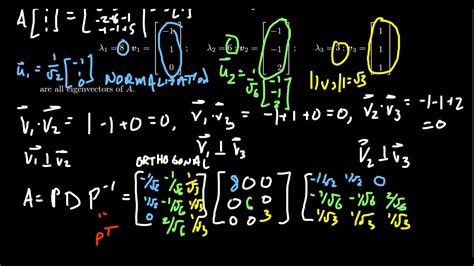 A [1 1 1] = [-2-6-1 -1-1+5]
λ₁ = 8 ; v₁ = [-1 1 0] ; λ₂ = 6 ; v₂ = [-1 -1 2] ; λ₃ = 3 ; v₃ = [1 1 1]
u₁ = 1/√2 [-1 1 0] NORMALIZATION u₂ = 1/√6 [-1 -1 2] ||v₃|| = √3
are all eigenvectors of A.
v₁·v₂ = 1-1+0=0, v₁·v₃ = -1+1+0=0, v₂·v₃ = -1-1+2 =0
v₁⊥v₂ v₁⊥v₃ v₂⊥v₃
ORTHOGONAL
A = P D P⁻¹ = [-1/√2 -1/√6 1/√3 1/√2 -1/√6 1/√3 0 2/√6 1/√3] [8 0 0 0 6 0 0 0 3] [-1/√2 1/√2 0 -1/√6 -1/√6 2/√6 1/√3 1/√3 1/√3]
" Pᵀ